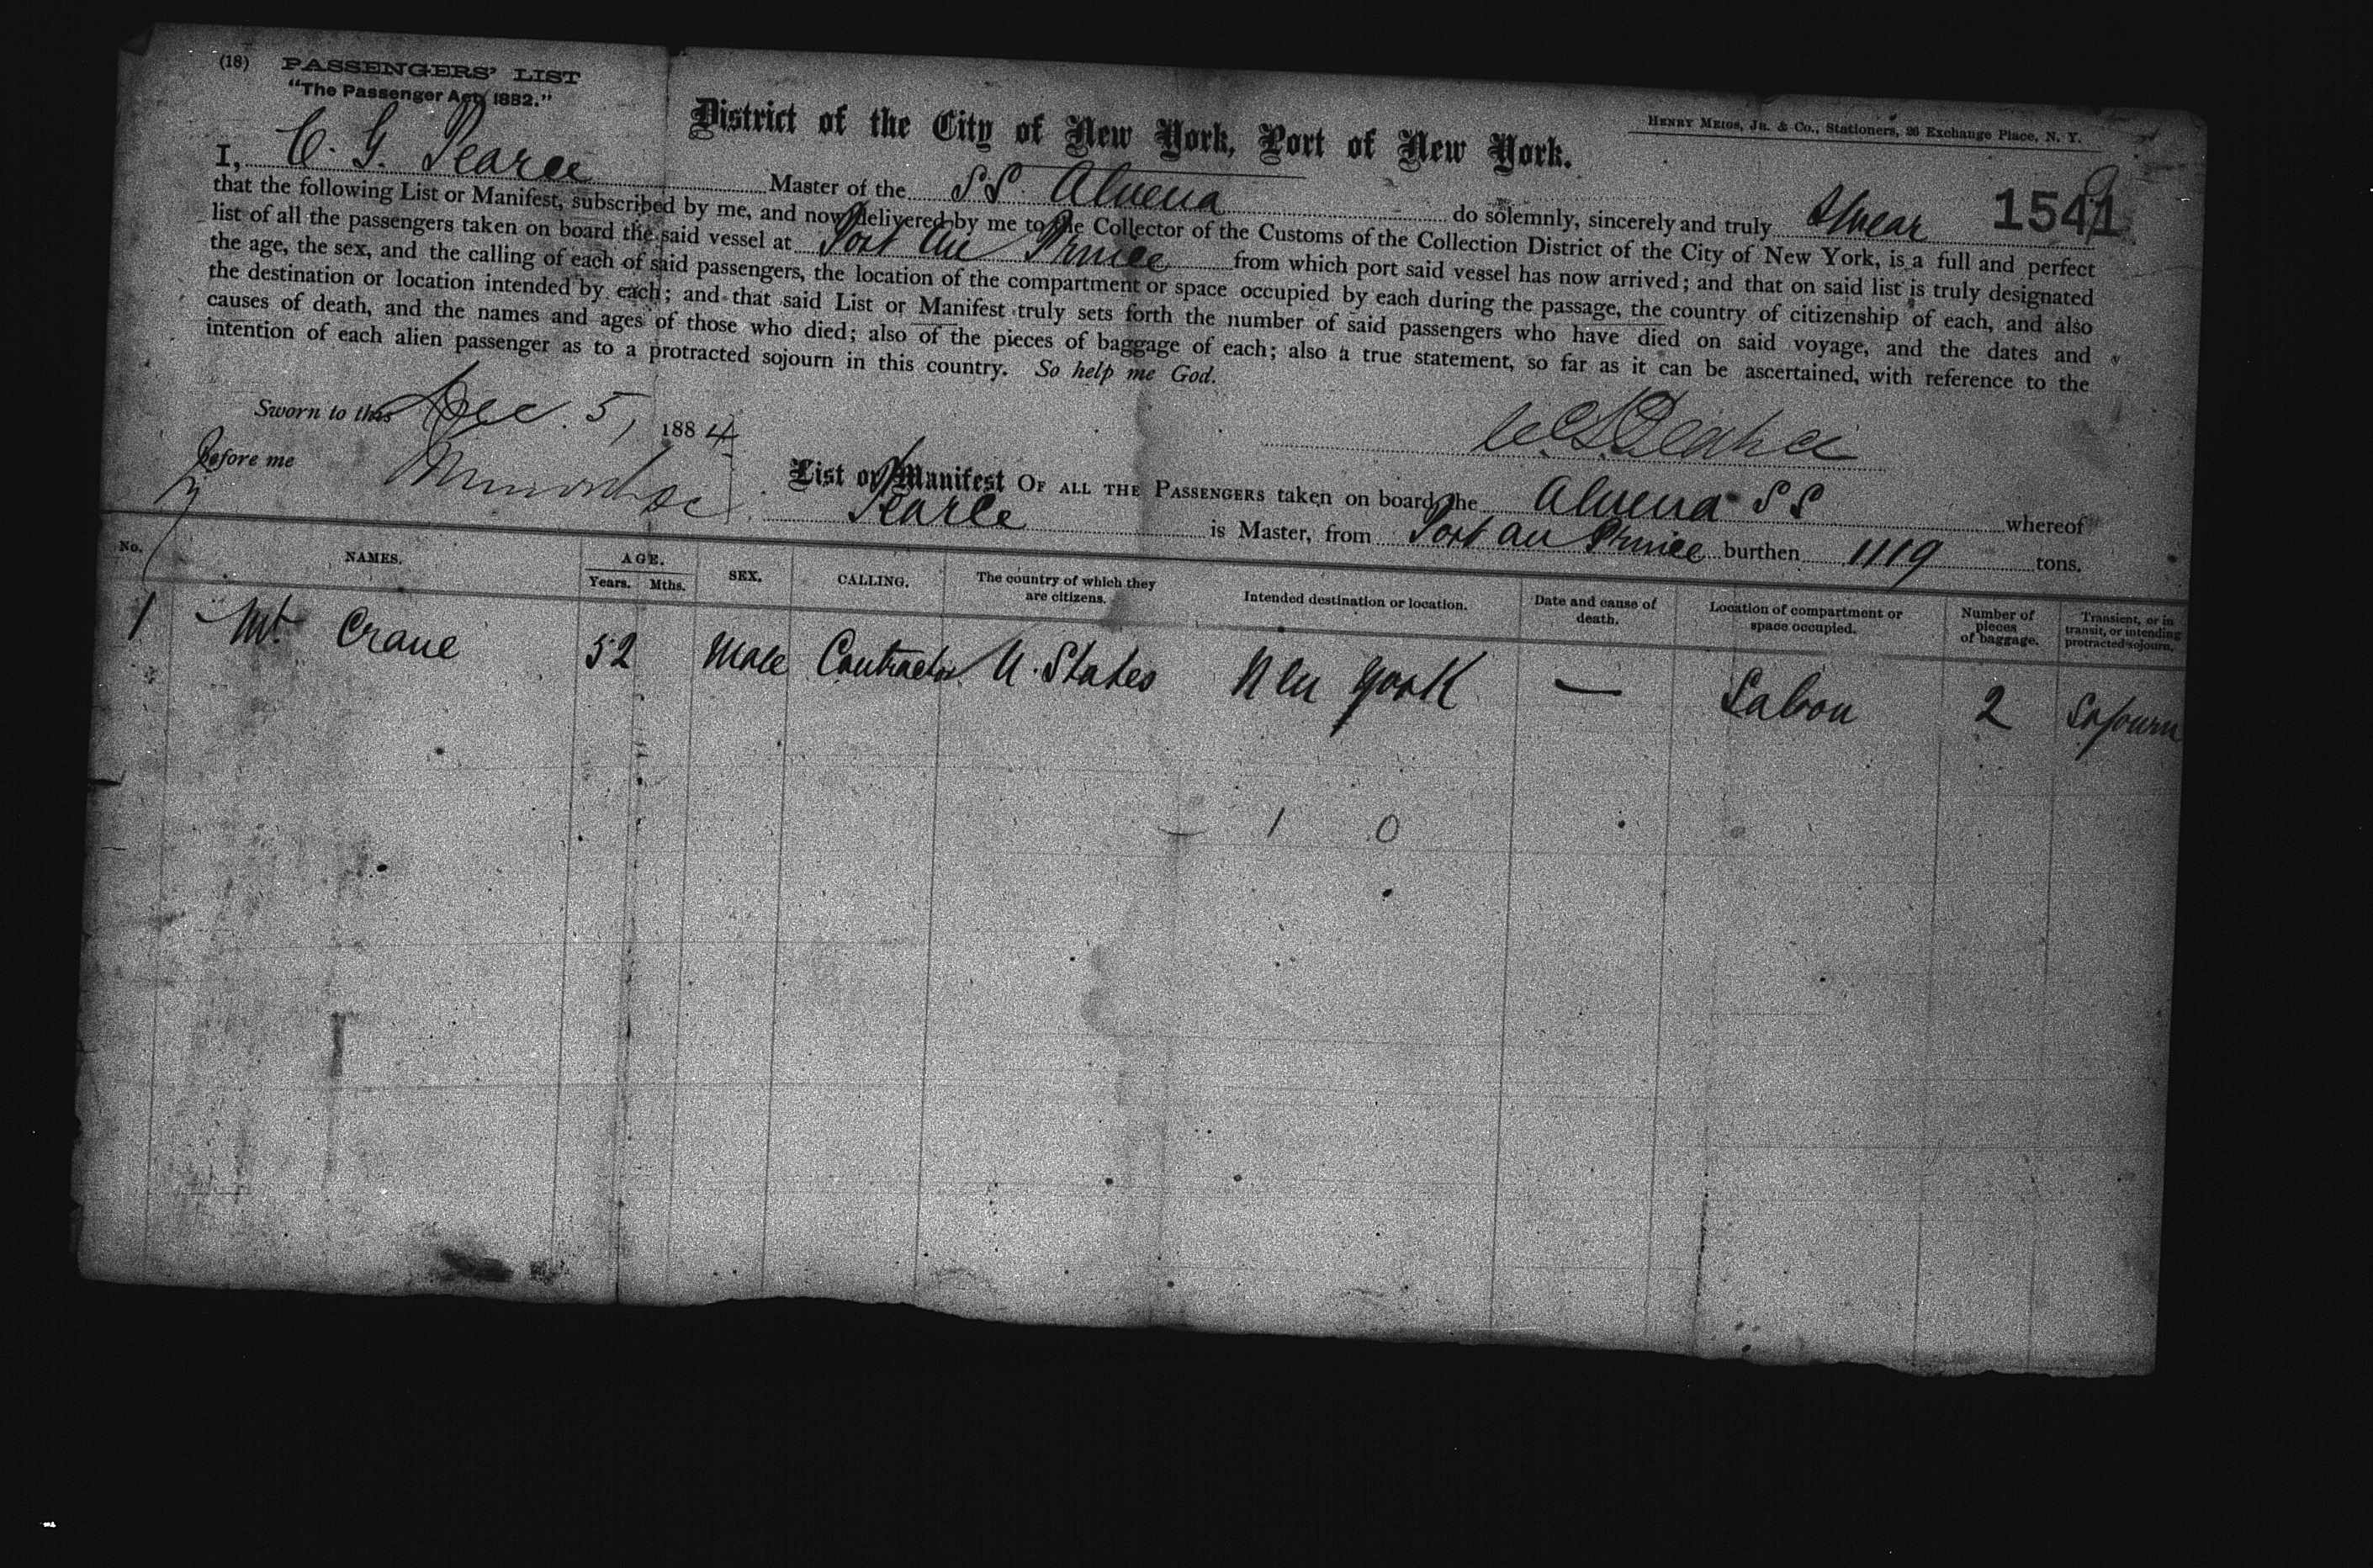 (18) PASSENGERS' LIST
"The Passenger Act, 1882."
HENRY MEIGS, JR. & CO., Stationers, 26 Exchange Place, N. Y.
District of the City of New York, Port of New York.
1541
I, C. G. Pearce Master of the SS Alvena do solemnly, sincerely and truly Swear
that the following List or Manifest, subscribed by me, and now delivered by me to the Collector of the Customs of the Collection District of the City of New York, is a full and perfect
list of all the passengers taken on board the said vessel at Port Au Prince from which port said vessel has now arrived; and that on said list is truly designated
the age, the sex, and the calling of each of said passengers, the location of the compartment or space occupied by each during the passage, the country of citizenship of each, and also
the destination or location intended by each; and that said List or Manifest truly sets forth the number of said passengers who have died on said voyage, and the dates and
causes of death, and the names and ages of those who died; also of the pieces of baggage of each; also a true statement, so far as it can be ascertained, with reference to the
intention of each alien passenger as to a protracted sojourn in this country. So help me God.
Sworn to this Dec. 5, 1884
Before me
List or Manifest OF ALL THE PASSENGERS taken on board the Alvena SS whereof
Pearce is Master, from Port au Prince burthen 1119 tons.
No. NAMES. AGE. Years. Mths. SEX. CALLING. The country of which they are citizens. Intended destination or location. Date and cause of death. Location of compartment or space occupied. Number of pieces of baggage. Transient, or in transit, or intending protracted sojourn.
1 Mr. Crane 52 Male Contractor U. States New York — Saloon 2 Sojourn
1 0